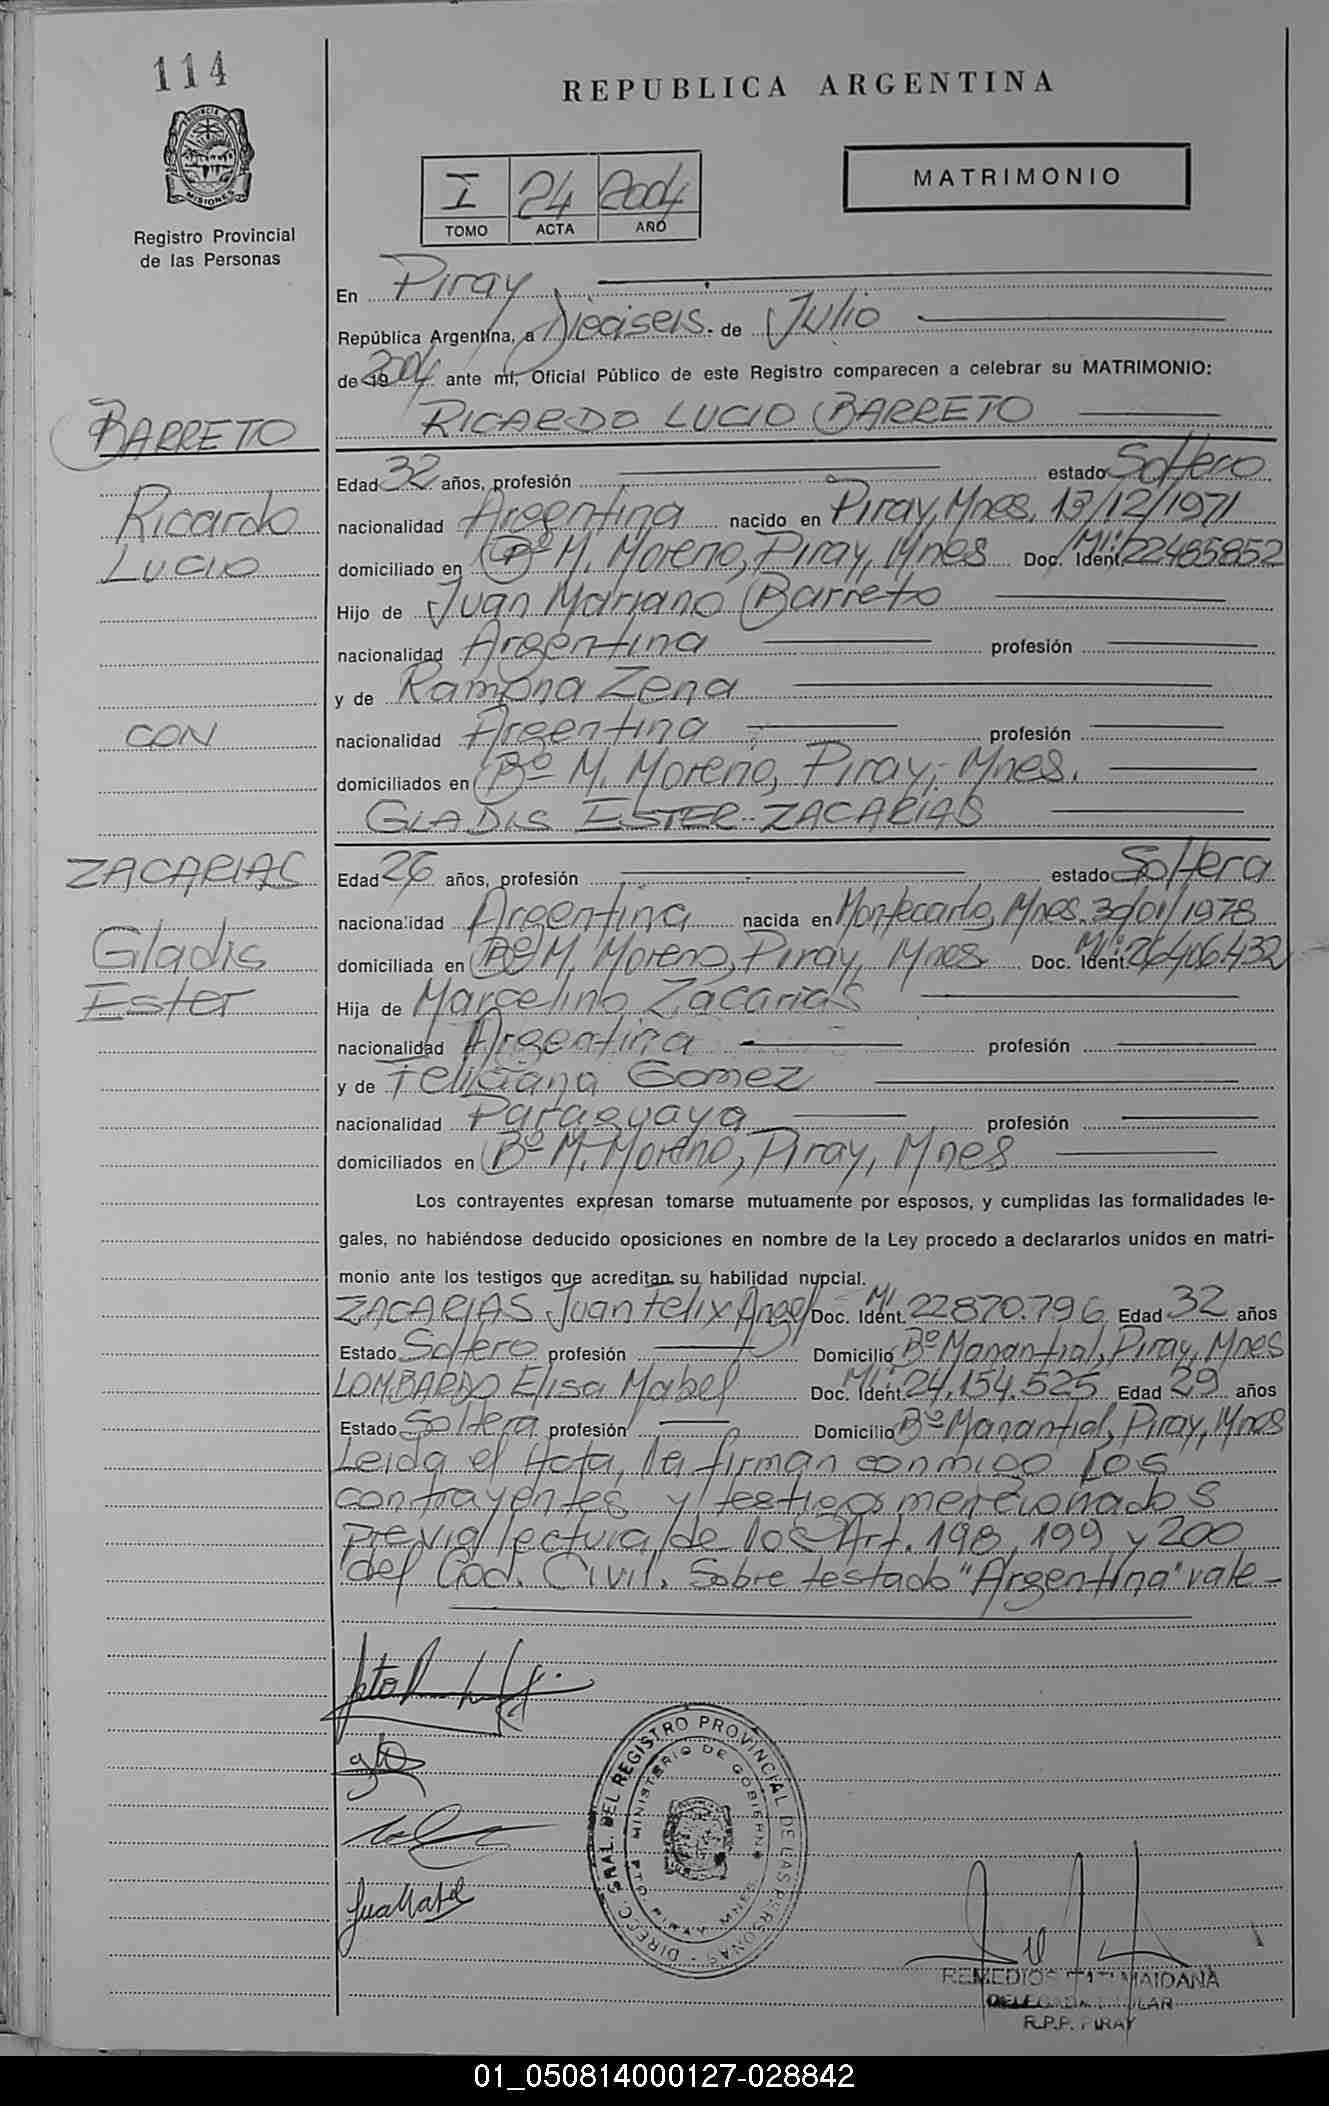 114
REPUBLICA ARGENTINA
MATRIMONIO
I 24 2004
TOMO ACTA AÑO
MISIONES
Registro Provincial
de las Personas
En Piray
República Argentina, a Dieciseis de Julio
de 19 2004 ante mí, Oficial Público de este Registro comparecen a celebrar su MATRIMONIO:
RICARDO LUCIO BARRETO
BARRETO
Ricardo
Lucio
CON
ZACARIAS
Gladis
Ester
Edad 32 años, profesión estado Soltero
nacionalidad Argentina nacido en Piray, Mnes, 13/12/1971
domiciliado en Bº M. Moreno, Piray, Mnes Doc. Ident. MI: 22485852
Hijo de Juan Mariano Barreto
nacionalidad Argentina profesión
y de Ramona Zena
nacionalidad Argentina profesión
domiciliados en Bº M. Moreno, Piray, Mnes.
GLADIS ESTER ZACARIAS
Edad 26 años, profesión estado Soltera
nacionalidad Argentina nacida en Montecarlo, Mnes. 30/01/1978
domiciliada en Bº M. Moreno, Piray, Mnes Doc. Ident. MI: 26.406.432
Hija de Marcelino Zacarias
nacionalidad Argentina profesión
y de Feliciana Gomez
nacionalidad Paraguaya profesión
domiciliados en Bº M. Moreno, Piray, Mnes
Los contrayentes expresan tomarse mutuamente por esposos, y cumplidas las formalidades le-
gales, no habiéndose deducido oposiciones en nombre de la Ley procedo a declararlos unidos en matri-
monio ante los testigos que acreditan su habilidad nupcial.
ZACARIAS Juan Felix Angel Doc. Ident. MI 22870.796 Edad 32 años
Estado Soltero profesión Domicilio Bº Manantial, Piray, Mnes
LOMBARDO Elisa Mabel Doc. Ident. MI: 24.154.525 Edad 29 años
Estado Soltera profesión Domicilio Bº Manantial, Piray, Mnes
Leida el Acta, la firman conmigo los
contrayentes y testigos mencionados
previa lectura de los Art. 198, 199 y 200
del Cod. Civil. Sobre testado "Argentina" vale-
DIREC. GRAL. DEL REGISTRO PROVINCIAL DE LAS PERSONAS
MINISTERIO DE GOBIERNO
PTO. PIRAY MNES
REMEDIOS MAIDANA
DELEGADA TITULAR
R.P.P. PIRAY
01_050814000127-028842